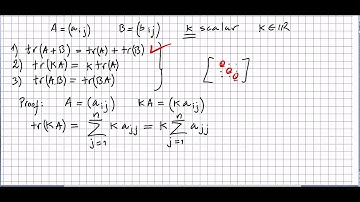 A = (aᵢⱼ) B = (bᵢⱼ) k scalar k∈ℝ
1) tr(A+B) = tr(A) + tr(B)
2) tr(kA) = k tr(A)
3) tr(A.B) = tr(BA)
Proof: A = (aᵢⱼ) kA = (kaᵢⱼ)
tr(kA) = ∑ⁿⱼ₌₁ k aⱼⱼ = k ∑ⁿⱼ₌₁ aⱼⱼ